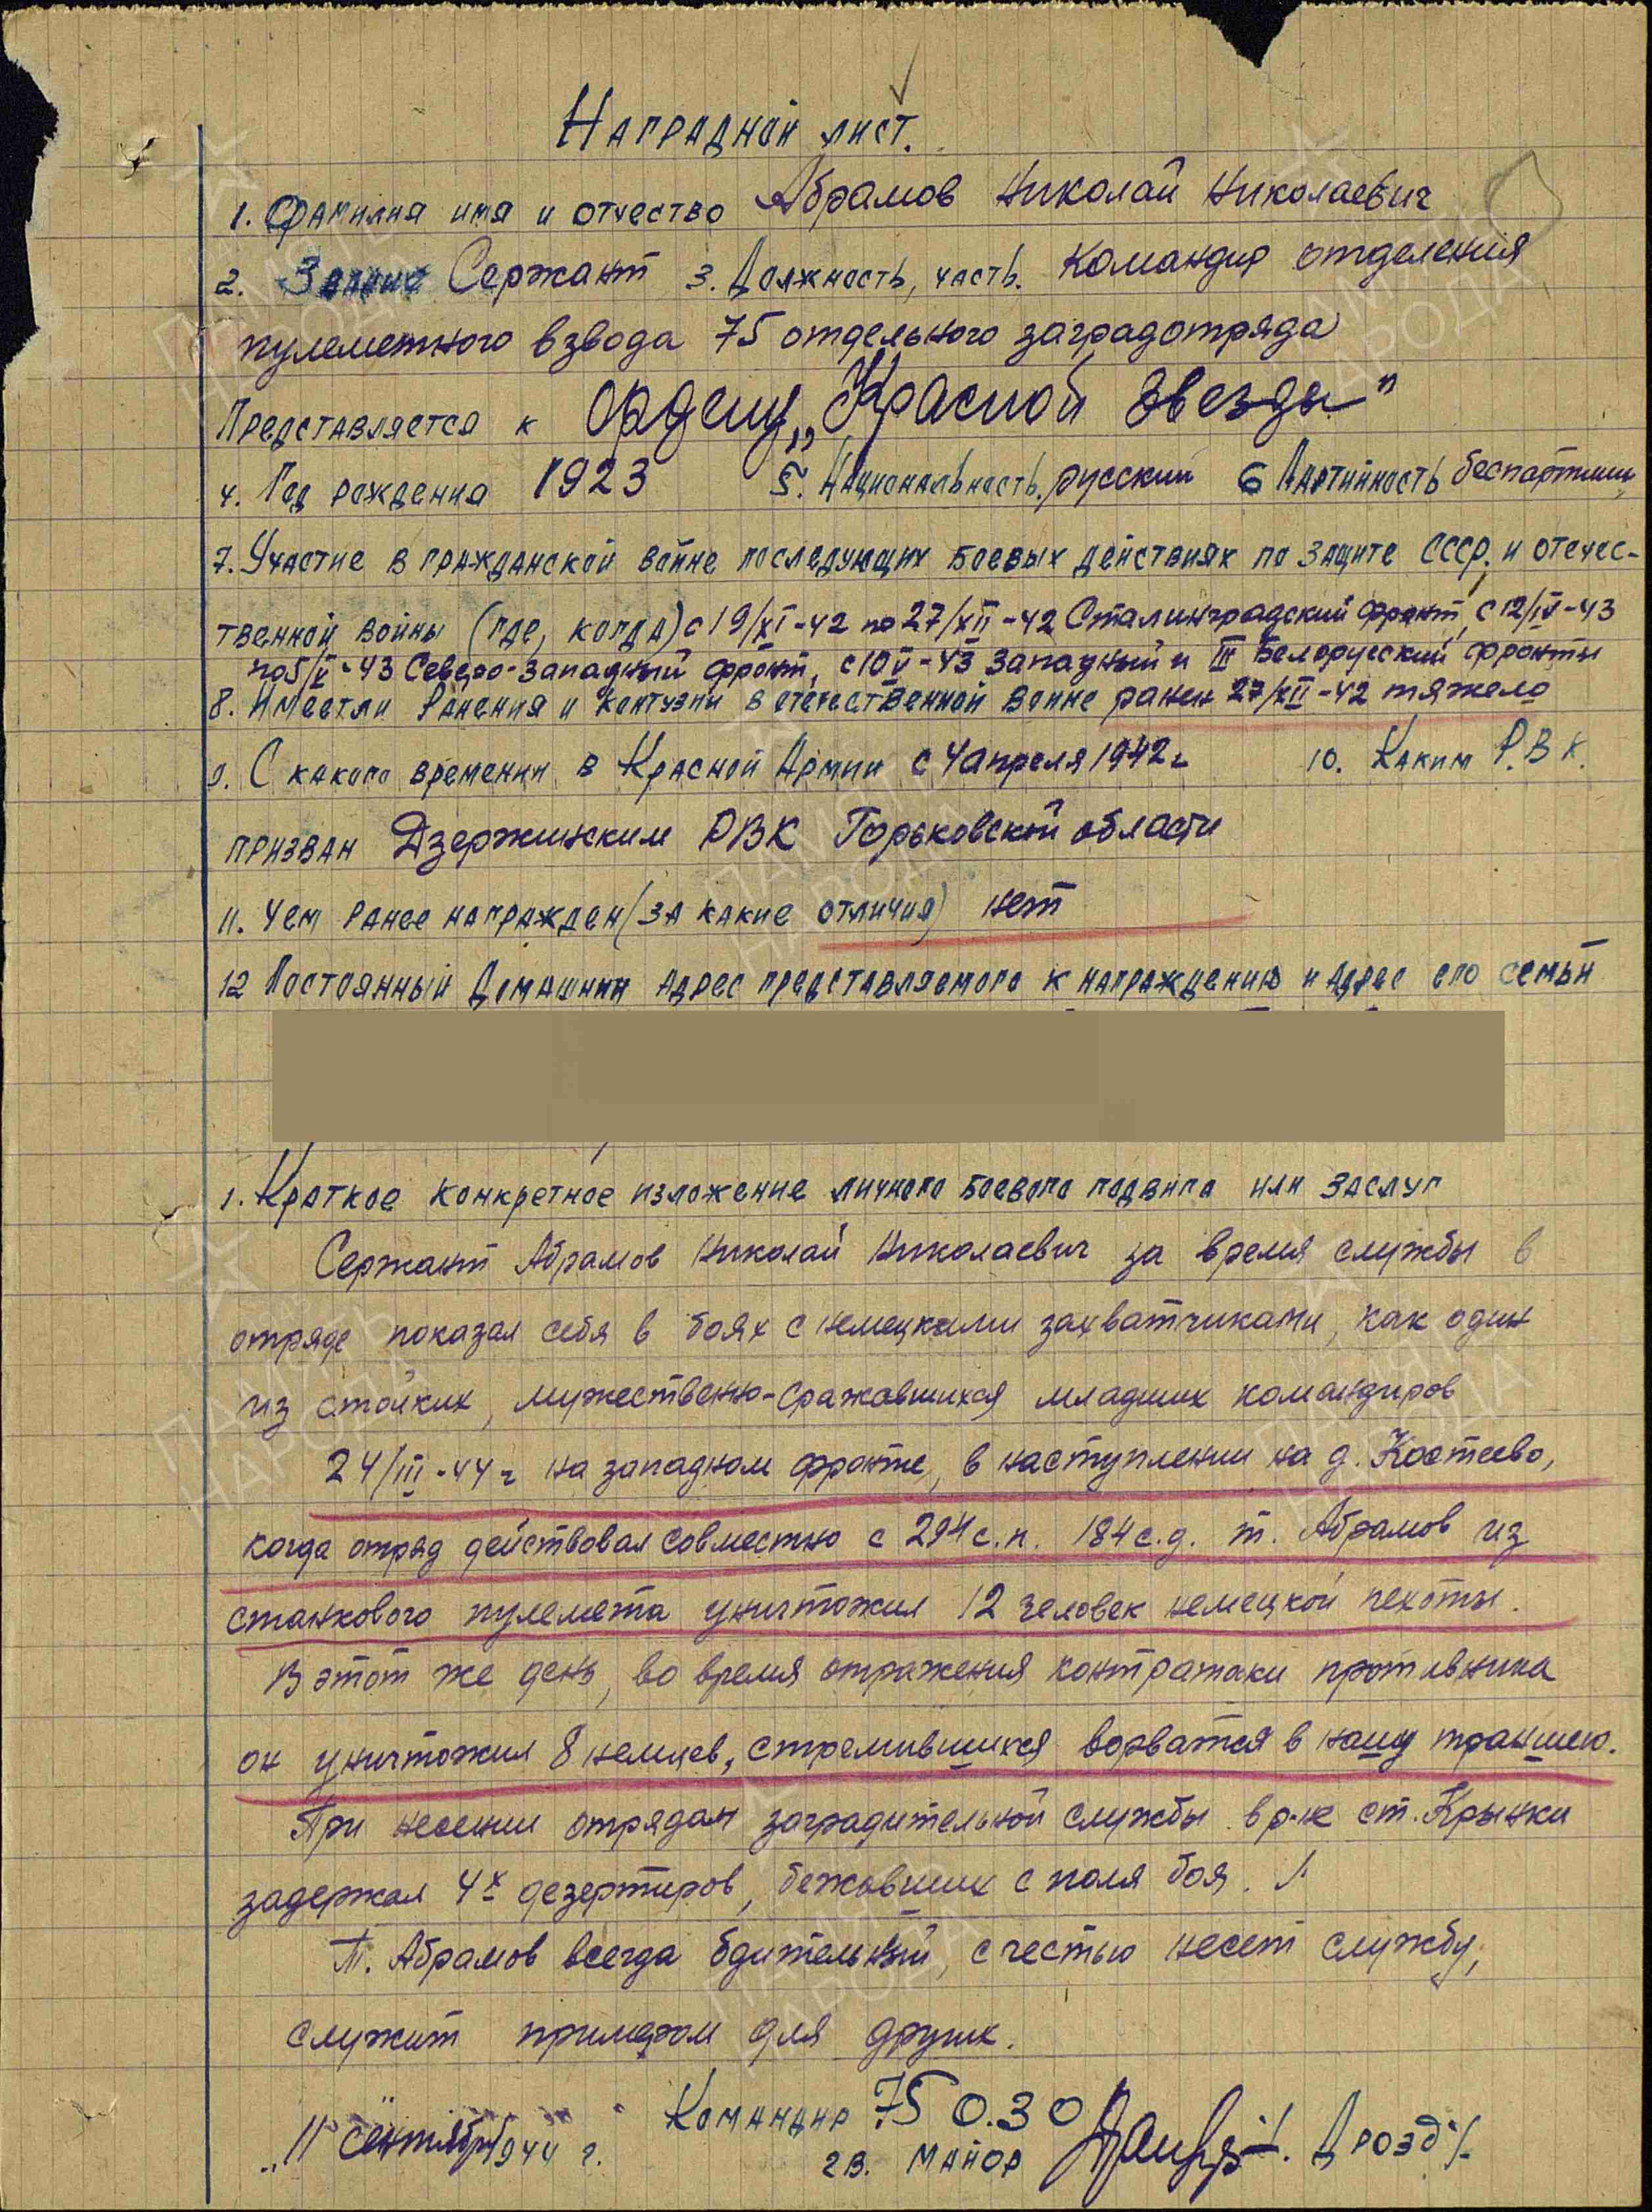 Наградной лист.
1. Фамилия имя и отчество Абрамов Николай Николаевич
2. Звание Сержант 3. Должность, часть. Командир отделения
пулеметного взвода 75 отдельного заградотряда
Представляется к ордену „Красной Звезды"
4. Год рождения 1923 5. Национальность. русский 6 Партийность беспартийн.
7. Участие в гражданской войне последующих боевых действиях по защите СССР. и отечес-
твенной войны (где, когда) с 19/XI-42 по 27/XII-42 Сталинградский фронт, с 12/IV-43
по 5/V-43 Северо-Западный фронт, с 10/V-43 Западный и III Белорусский фронты
8. Имеет ли ранения и контузии в отечественной войне ранен 27/XII-42 тяжело
9. С какого времении в Красной Армии с 4 апреля 1942 г 10. Каким Р.В К.
призван Дзержинским РВК Горьковской области
11. Чем ранее награжден (за какие отличия) нет
12 Постоянный домашнии адрес представляемого к награждению и адрес его семьи
1. Краткое конкретное изложение личного боевого подвига или заслуг
Сержант Абрамов Николай Николаевич за время службы в
отряде показал себя в боях с немецкими захватчиками, как один
из стойких, мужественно-сражавшихся младших командиров
24/III-44 г на западном фронте, в наступлении на д. Костеево,
когда отряд действовал совместно с 294 с.п. 184 с.д. т. Абрамов из
станкового пулемета уничтожил 12 человек немецкой пехоты.
В этот же день, во время отражения контратаки противника
он уничтожил 8 немцев, стремившихся ворватся в нашу траншею.
При несении отрядом заградительной службы в р-не ст. Крынки
задержал 4х дезертиров, бежавших с поля боя.
Т. Абрамов всегда бдительный, с честью несет службу,
служит примером для других.
„11" сентября 1944 г. Командир 75 О.З О
гв. майор /. Дрозд./